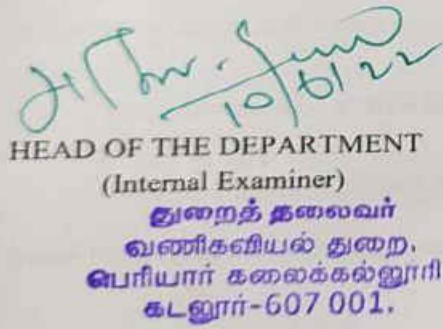 10/6/22
HEAD OF THE DEPARTMENT
(Internal Examiner)
துறைத் தலைவர்
வணிகவியல் துறை.
பெரியார் கலைக்கல்லூரி
கடலூர்-607 001.